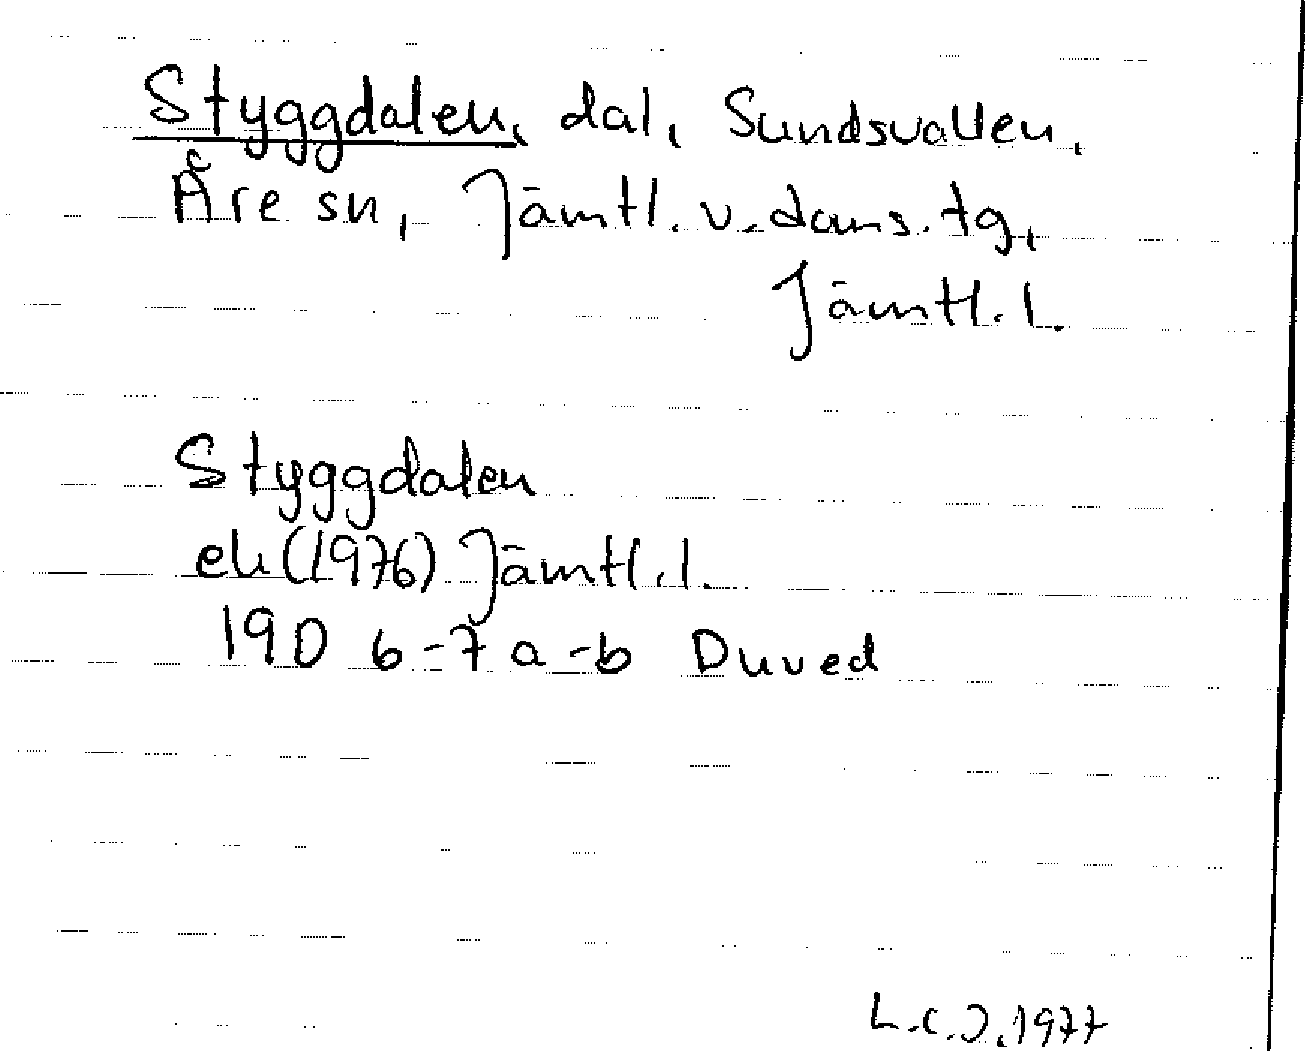 Styggdalen, dal, Sundsvallen,
Åre sn, Jämtl. v. doms. tg,
Jämtl. l.
Styggdalen
ek (1976) Jämtl. l.
19D 6-7 a-b Duved
L.C.J. 1977